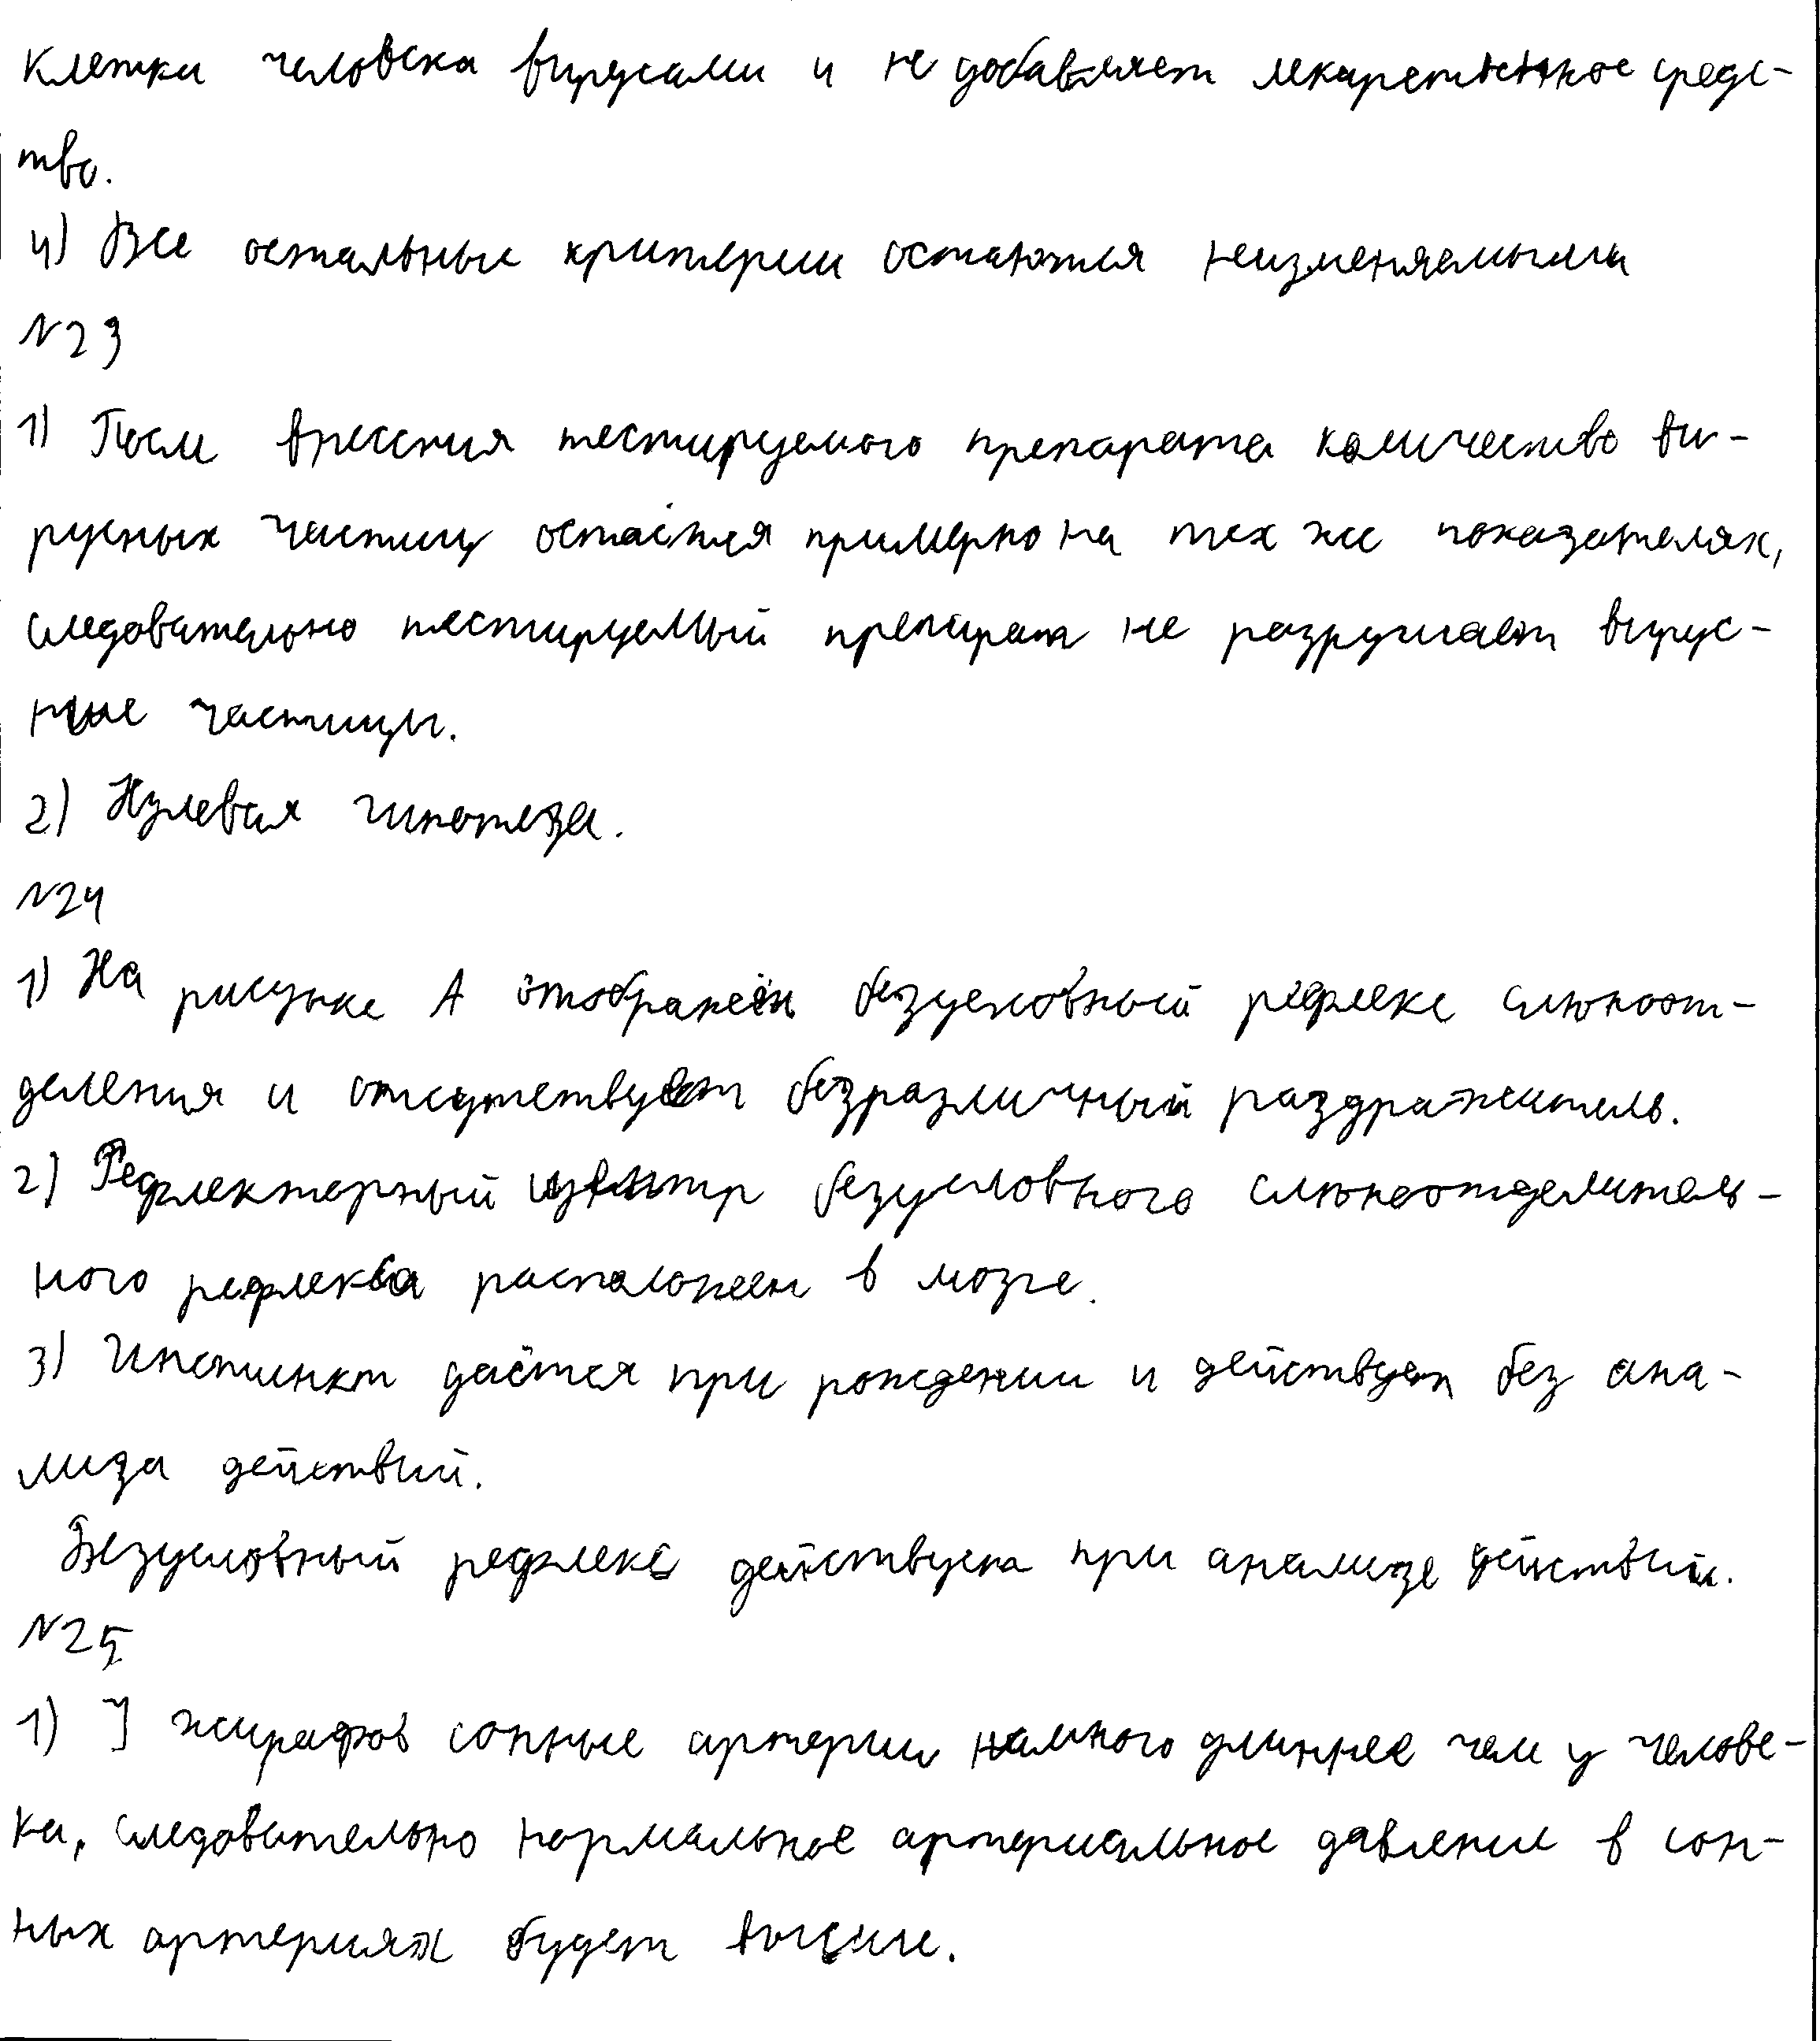 клетки человека вирусами и не добавляет лекарственное средс-
тво.
4) Все остальные критерии остаются неизменяемыми
N23
1) После внесения тестируемого препарата количество ви-
русных частиц остаётся примерно на тех же показателях,
следовательно тестируемый препарат не разрушает вирус-
ные частицы.
2) Нулевая гипотеза.
N24
1) На рисунке А отображён безусловный рефлекс слюноот-
деления и отсутствует безразличный раздражитель.
2) Рефлекторный центр безусловного слюноотделитель-
ного рефлекса расположен в мозге.
3) Инстинкт даётся при рождении и действует без ана-
лиза действий.
Безусловный рефлекс действует при анализе действий.
N25
1) У жирафов сонные артерии намного длиннее чем у челове-
ка, следовательно нормальное артериальное давление в сон-
ных артериях будет высшие.